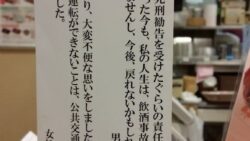 死刑勧告を受けたぐらいの責任
った今も、私の人生は、飲酒事故
せんし、今後、戻れないかもし
男
り、大変不便な思いをしました
運転ができないことは、公共交通
した。
女